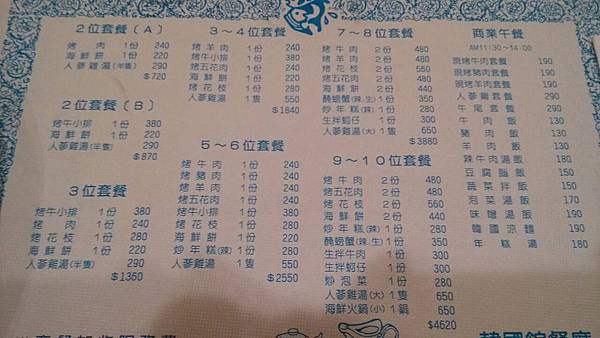 2位套餐（A）
烤肉 1份 240
海鮮餅 1份 220
人蔘雞湯(半隻) 290
$720
2位套餐（B）
烤牛小排 1份 380
海鮮餅 1份 220
人蔘雞湯(半隻) 290
$870
3位套餐
烤牛小排 1份 380
烤肉 1份 240
烤花枝 1份 280
海鮮餅 1份 220
人蔘雞湯(半隻) 290
$1360
3～4位套餐
烤羊肉 1份 240
烤牛小排 1份 380
烤五花肉 1份 240
海鮮餅 1份 220
烤花枝 1份 280
人蔘雞湯 1隻 550
$1840
5～6位套餐
烤牛肉 1份 240
烤豬肉 1份 240
烤羊肉 1份 240
烤五花肉 1份 240
烤牛小排 1份 380
烤花枝 1份 280
海鮮餅 1份 220
炒年糕(辣) 1份 280
人蔘雞湯 1隻 550
$2550
7～8位套餐
烤牛肉 2份 480
烤羊肉 2份 480
烤花枝 2份 560
烤五花肉 2份 480
海鮮餅 2份 440
醃螃蟹(辣.生) 1份 350
炒年糕(辣) 1份 280
生拌蚵仔 1份 300
人蔘雞湯(大) 1隻 650
$3880
9～10位套餐
烤牛肉 2份 480
烤五花肉 2份 480
烤花枝 2份 560
海鮮餅 2份 440
炒年糕(辣) 1份 280
醃螃蟹(辣.生) 1份 350
生拌牛肉 1份 300
生拌蚵仔 1份 300
炒泡菜 1份 280
人蔘雞湯(大) 1隻 650
海鮮火鍋(小) 1鍋 650
$4620
商業午餐
AM11:30～14:00
現烤牛肉套餐 190
現烤豬肉套餐 190
現烤羊肉套餐 190
人蔘雞套餐 290
牛尾套餐 290
牛肉飯 130
豬肉飯 130
羊肉飯 130
辣牛肉湯飯 180
豆腐腦飯 150
蔬菜拌飯 150
泡菜湯飯 170
味噌湯飯 190
韓國涼麵 190
年糕湯 180
韓國館餐廳